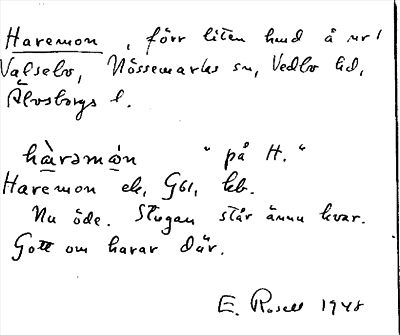 Haremon, förr liten lund å nr 1
Valsebo, Nössemarks sn, Vedbo hd,
Älvsborgs l.
hàrəmón " på H. "
Haremon ek, G61, kb.
Nu öde. Stugan står ännu kvar.
Gott om harar där.
E. Rosell 1948